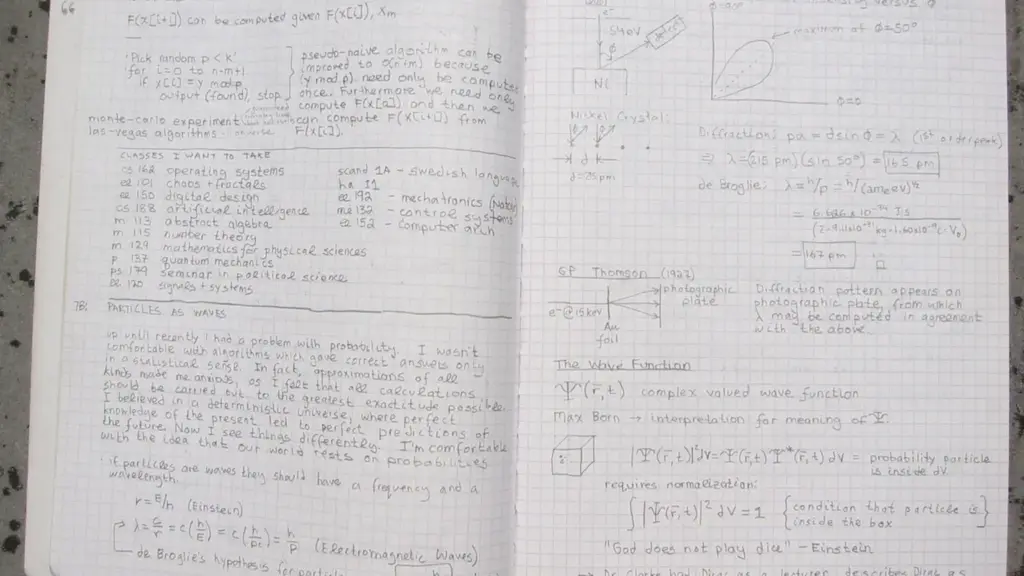 66
F(x[i+]) can be computed given F(x[i]), xm
'Pick random p < k'
for i=0 to n-m+1
if x[i] = y mod p
output (found), stop
pseudo-naive algorithm can be
improved to O(n+m) because
(y mod p) need only be computed
once. Furthermore we need only
compute F(x[0]) and then we
can compute F(x[i+1]) from
F(x[i]).
monte-carlo experiment
las-vegas algorithms
CLASSES I WANT TO TAKE
cs 162 operating systems
ee 101 chaos + fractals
ee 150 digital design
cs 188 artificial intelligence
m 113 abstract algebra
m 115 number theory
m 129 mathematics for physical sciences
p 137 quantum mechanics
ps 179 seminar in political science
ee 120 signals + systems
scand 1A - swedish language
ha 11
ee 192 - mechatronics
me 132 - control systems
ee 152 - computer arch
7B: PARTICLES AS WAVES
up until recently I had a problem with probability. I wasn't
comfortable with algorithms which gave correct answers only
in a statistical sense. In fact, approximations of all
kinds made me anxious, as I felt that all calculations
should be carried out to the greatest exactitude possible.
I believed in a deterministic universe, where perfect
knowledge of the present led to perfect predictions of
the future. Now I see things differently. I'm comfortable
with the idea that our world rests on probabilities
if particles are waves they should have a frequency and a
wavelength.
r = E/h (Einstein)
λ = c/r = c(h/E) = c(h/pc) = h/p (Electromagnetic Waves)
de Broglie's hypothesis for
e-
54 eV
φ
detector
Ni
Nickel Crystal:
d
versus φ
maximum at φ=50°
φ=0
Diffraction: pa = d sin φ = λ (1st order peak)
⇒ λ = (215 pm)(sin 50°) = 165 pm
de Broglie: λ = h/p = h/(2meV)½
= 167 pm
GP Thomson (1927)
e- @ 15 keV
Au
foil
photographic
plate
Diffraction pattern appears on
photographic plate, from which
λ may be computed in agreement
with the above.
The Wave Function
Ψ(r̄,t) complex valued wave function
Max Born → interpretation for meaning of Ψ.
|Ψ(r̄,t)|²dV = Ψ(r̄,t)Ψ*(r̄,t) dV = probability particle
is inside dV
requires normalization:
∫|Ψ(r̄,t)|² dV = 1 {condition that particle is
inside the box}
"God does not play dice" - Einstein